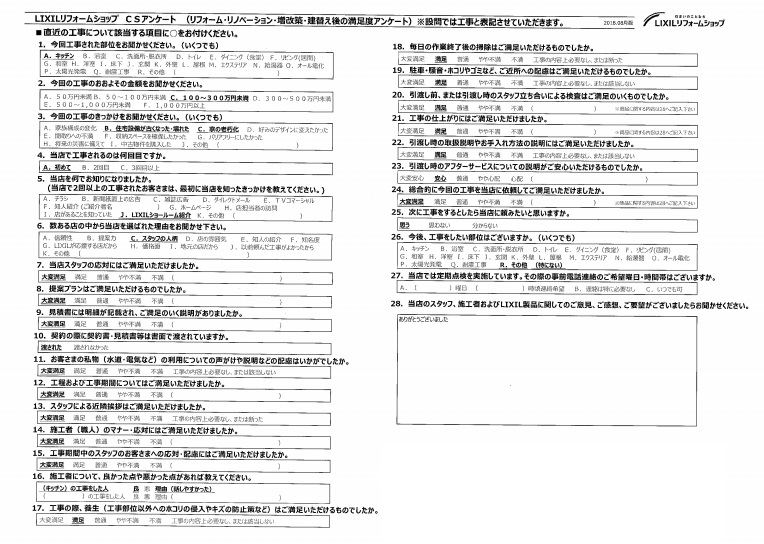 LIXILリフォームショップ ＣＳアンケート （リフォーム・リノベーション・増改築・建替え後の満足度アンケート）※設問では工事と表記させていただきます。
2018.08月版
住まいのことなら
LIXILリフォームショップ
■ 直近の工事について該当する項目に○をお付けください。
1．今回工事された部位をお聞かせください。（いくつでも）
A．キッチン B．浴室 C．洗面所・脱衣所 D．トイレ E．ダイニング（食堂） F．リビング(居間)
G．和室 H．洋室 I．床下 J．玄関 K．外壁 L．屋根 M．エクステリア N．給湯器 O．オール電化
P．太陽光発電 Q．耐震工事 R．その他（ ）
2．今回の工事のおおよその金額をお聞かせください。
A．５０万円未満 B．５０～１００万円未満 C．１００～３００万円未満 D．３００～５００万円未満
E．５００～１,０００万円未満 F．１,０００万円以上
3．今回の工事のきっかけをお聞かせください。（いくつでも）
A．家族構成の変化 B．住宅設備が古くなった・壊れた C．家の老朽化 D．好みのデザインに変えたかった
E．間取りへの不満 F．収納スペースを確保したかった G．バリアフリーにしたかった
H．将来の災害に備えて I．中古物件を購入した J．その他（ ）
4．当店で工事されるのは何回目ですか。
A．初めて B．2回目 C．3回目以上
5．当店を何でお知りになりましたか。
（当店で２回以上の工事されたお客さまは、最初に当店を知ったきっかけを教えてください。）
A．チラシ B．新聞紙面上の広告 C．雑誌広告 D．ダイレクトメール E．TVコマーシャル
F．知人紹介（ご紹介者名 ） G．ホームページ H．店担当者の訪問
I．店があることを知っていた J．LIXILショールーム紹介 K．その他（ ）
6．数ある店の中から当店を選ばれた理由をお聞かせ下さい。
A．信頼性 B．提案力 C．スタッフの人柄 D．店の雰囲気 E．知人の紹介 F．知名度
G．LIXILが応援する店だから H．価格面 I．地元の店だから J．以前頼んだ工事がよかったから
K．その他（ ）
7．当店スタッフの応対にはご満足いただけましたか。
大変満足 満足 普通 やや不満 不満（ ）
8．提案プランはご満足いただけるものでしたか。
大変満足 満足 普通 やや不満 不満（ ）
9．見積書には明細が記載され、ご満足のいく説明がありましたか。
大変満足 満足 普通 やや不満 不満（ ）
10．契約の際に契約書・見積書等は書面で渡されていますか。
渡された 渡されなかった
11．お客さまの私物（水道・電気など）の利用についての声がけや説明などの配慮はいかがでしたか。
大変満足 満足 普通 やや不満 不満 工事の内容上必要なし、または該当しない
12．工程および工事期間についてはご満足いただけましたか。
大変満足 満足 普通 やや不満 不満（ ）
13．スタッフによる近隣挨拶はご満足いただけましたか。
大変満足 満足 普通 やや不満 不満 工事の内容上必要なし、または断った
14．施工者（職人）のマナー・応対にはご満足いただけましたか。
大変満足 満足 普通 やや不満 不満（ ）
15．工事期間中のスタッフのお客さまへの応対・配慮にはご満足いただけましたか。
大変満足 満足 普通 やや不満 不満（ ）
16．施工者について、良かった点や悪かった点があれば教えてください。
（キッチン）の工事をした人 良 悪 理由（話しやすかった）
（ ）の工事をした人 良 悪 理由（ ）
17．工事の際、養生（工事部位以外へのホコリの侵入やキズの防止策など）はご満足いただけるものでしたか。
大変満足 満足 普通 やや不満 不満 工事の内容上必要なし、または該当しない
18．毎日の作業終了後の掃除はご満足いただけるものでしたか。
大変満足 満足 普通 やや不満 不満 工事の内容上必要なし、または断った
19．駐車・騒音・ホコリやゴミなど、ご近所への配慮はご満足いただけるものでしたか。
大変満足 満足 普通 やや不満 不満 工事の内容上必要なし、または該当しない
20．引渡し前、または引渡し時のスタッフ立ち合いによる検査はご満足のいくものでしたか。
大変満足 満足 普通 やや不満 不満（ ） ※商品に関する内容は28へご記入下さい
21．工事の仕上がりにはご満足いただけましたか。
大変満足 満足 普通 やや不満 不満（ ） ※商品に関する内容は28へご記入下さい
22．引渡し時の取扱説明やお手入れ方法の説明にはご満足いただけましたか。
大変満足 満足 普通 やや不満 不満 工事の内容上必要なし、または該当しない
23．引渡し時のアフターサービスについての説明がご安心いただけるものでしたか。
大変安心 安心 普通 やや心配 心配（ ）
24．総合的に今回の工事を当店に依頼してご満足いただけましたか。
大変満足 満足 普通 やや不満 不満（ ） ※商品に関する内容は28へご記入下さい
25．次に工事をするとしたら当店に頼みたいと思いますか。
思う 思わない 分からない
26．今後、工事をしたい部位はございますか。（いくつでも）
A．キッチン B．浴室 C．洗面所・脱衣所 D．トイレ E．ダイニング（食堂） F．リビング(居間)
G．和室 H．洋室 I．床下 J．玄関 K．外壁 L．屋根 M．エクステリア N．給湯器 O．オール電化
P．太陽光発電 Q．耐震工事 R．その他（特にない）
27．当店では定期点検を実施しています。その際の事前電話連絡のご希望曜日・時間帯はございますか。
A．（ ）曜日（ ）時頃連絡希望 B．連絡は特に必要なし C．いつでも可
28．当店のスタッフ、施工者およびLIXIL製品に関してのご意見、ご感想、ご要望がございましたらお聞かせください。
ありがとうございました